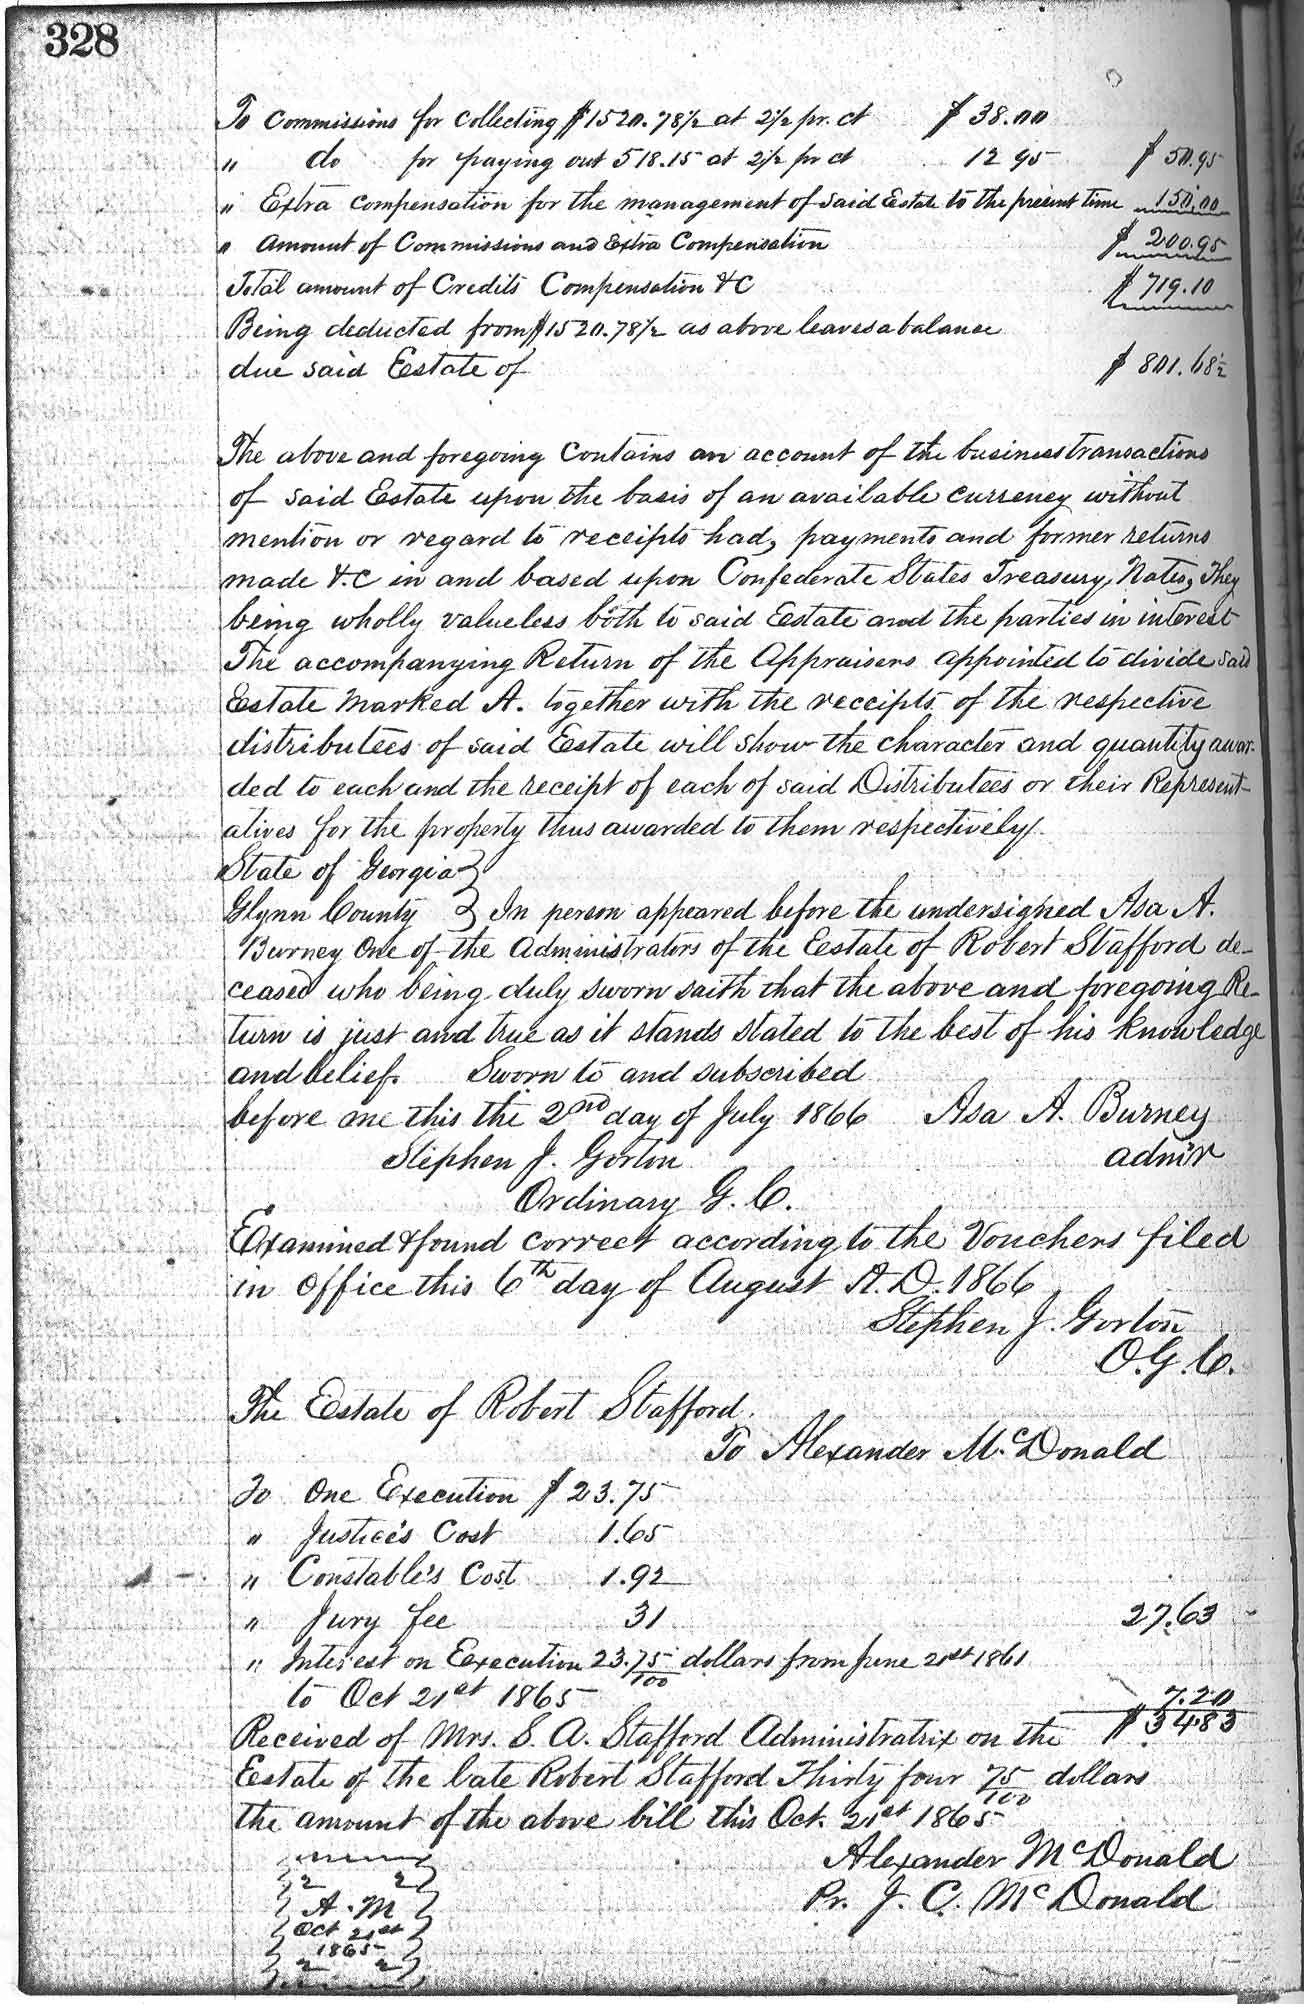 328
To Commissions for Collecting $1520.78½ at 2½ pr. ct $ 38.00
" do for paying out 518.15 at 2½ pr ct 12 95 $ 50.95
" Extra Compensation for the management of said Estate to the present time 150.00
" Amount of Commissions and Extra Compensation $ 200.95
Total amount of Credits Compensation &C $ 719.10
Being deducted from $1520.78½ as above leaves a balance
due said Estate of $ 801.68½
The above and foregoing Contains an account of the business transactions
of said Estate upon the basis of an available currency without
mention or regard to receipts had, payments and former returns
made &.C in and based upon Confederate States Treasury Notes, They
being wholly valueless both to said Estate and the parties in interest
The accompanying Return of the Appraisers appointed to divide said
Estate Marked A. together with the receipts of the respective
distributees of said Estate will show the character and quantity awar-
ded to each and the receipt of each of said Distributees or their Represent-
atives for the property thus awarded to them respectively.
State of Georgia }
Glynn County } In person appeared before the undersigned Asa A.
Burney One of the Administrators of the Estate of Robert Stafford de-
ceased who being duly sworn saith that the above and foregoing Re-
turn is just and true as it stands stated to the best of his knowledge
and belief. Sworn to and subscribed
before me this the 2nd day of July 1866 Asa A. Burney
Stephen J. Gorton adm'r
Ordinary G. C.
Examined & found correct according to the Vouchers filed
in office this 6th day of August A.D. 1866
Stephen J. Gorton
O.G.C.
The Estate of Robert Stafford.
To Alexander McDonald
To One Execution $ 23.75
" Justice's Cost 1.65
" Constable's Cost 1.92
" Jury fee 31 27.63
" Interest on Execution 23.75/100 dollars from June 21st 1861
to Oct 21st 1865 7.20
Received of Mrs. S. A. Stafford Administratrix on the $ 34.83
Estate of the late Robert Stafford Thirty four 75/100 dollars
the amount of the above bill this Oct. 21st 1865
Alexander McDonald
Pr. J. C. McDonald
A. M
Oct 21st
1865